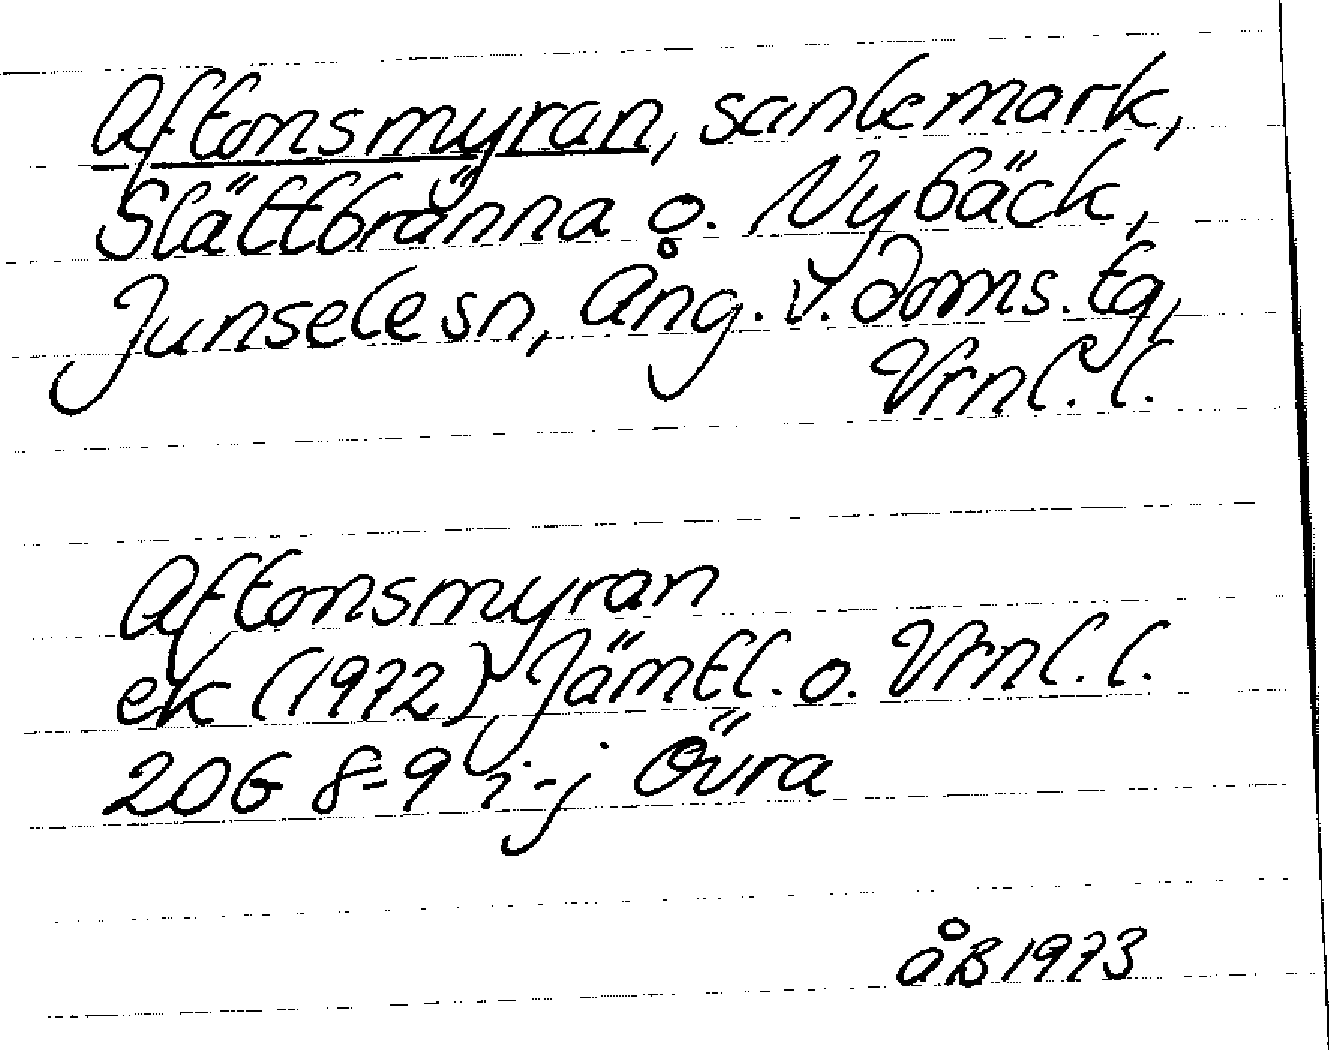 Aftonsmyran, sankmark,
Slättbränna o. Nybäck,
Junsele sn, Ång. v. doms. tg,
Vrnl. l.
Aftonsmyran
ek (1972) Jämtl. o. Vrnl. l.
20G 8-9 i-j Övra
åB 1973